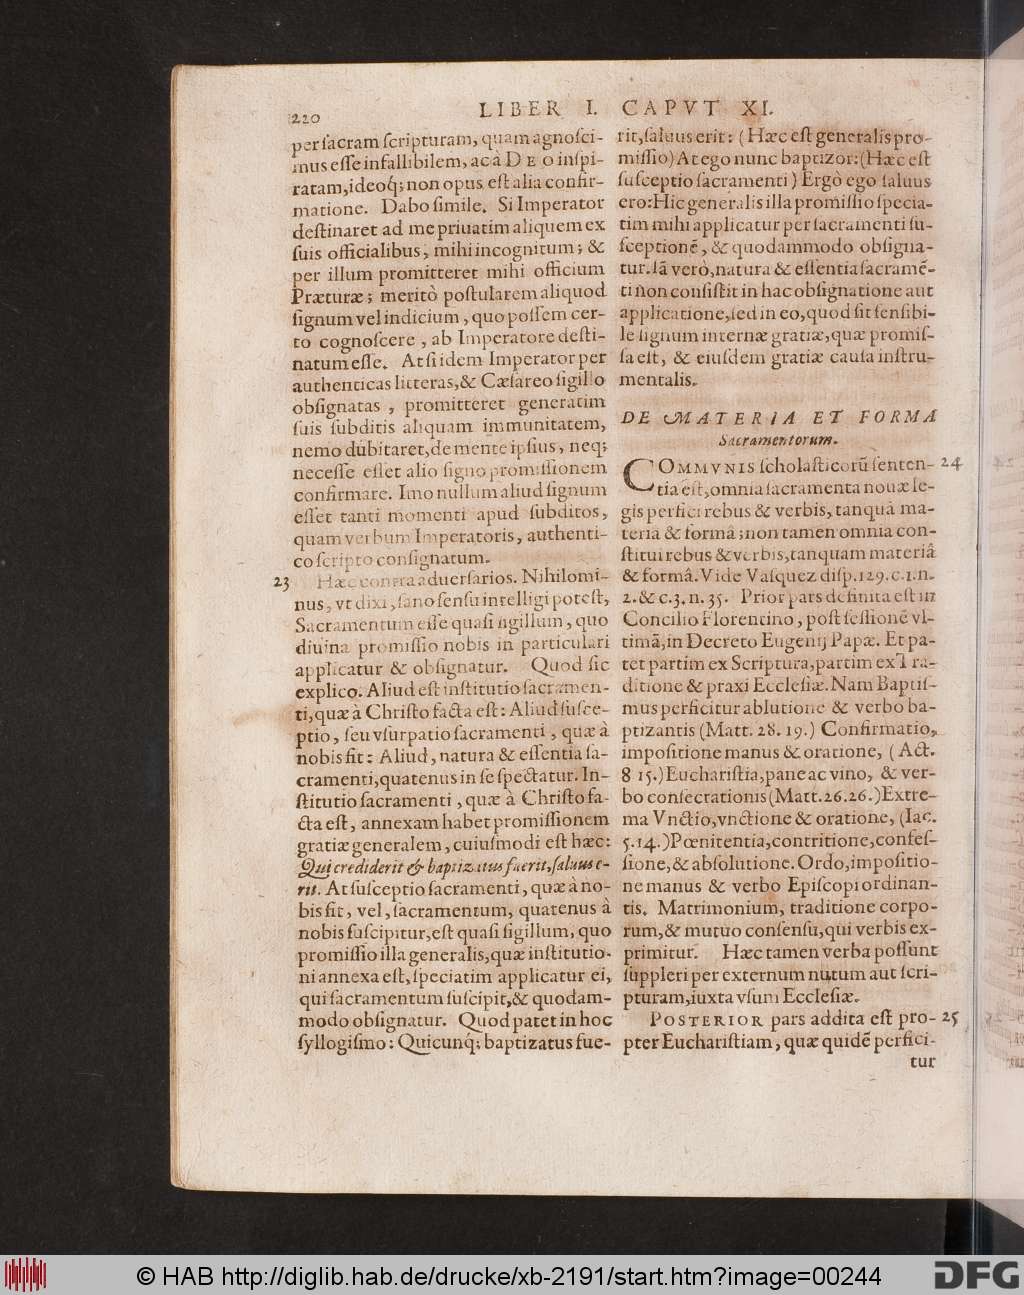 220
LIBER I. CAPVT XI.
per ſacram ſcripturam, quam agnoſci-
mus eſſe infallibilem, ac à DEO inſpi-
ratam, ideoq́; non opus eſt alia confir-
matione. Dabo ſimile. Si Imperator
deſtinaret ad me priuatim aliquem ex
ſuis officialibus, mihi incognitum; &
per illum promitteret mihi officium
Præturæ; meritò poſtularem aliquod
ſignum vel indicium, quo poſſem cer-
to cognoſcere, ab Imperatore deſti-
natum eſſe. At ſi idem Imperator per
authenticas litteras, & Cæſareo ſigillo
obſignatas, promitteret generatim
ſuis ſubditis aliquam immunitatem,
nemo dubitaret, de mente ipſius, neq;
neceſſe eſſet alio ſigno promiſſionem
confirmare. Imo nullum aliud ſignum
eſſet tanti momenti apud ſubditos,
quam verbum Imperatoris, authenti-
co ſcripto conſignatum.
23 Hæc contra aduerſarios. Nihilomi-
nus, vt dixi, ſano ſenſu intelligi poteſt,
Sacramentum eſſe quaſi ſigillum, quo
diuina promiſſio nobis in particulari
applicatur & obſignatur. Quod ſic
explico. Aliud eſt inſtitutio ſacramen-
ti, quæ à Chriſto facta eſt: Aliud ſuſce-
ptio, ſeu vſurpatio ſacramenti, quæ à
nobis fit: Aliud, natura & eſſentia ſa-
cramenti, quatenus in ſe ſpectatur. In-
ſtitutio ſacramenti, quæ à Chriſto fa-
cta eſt, annexam habet promiſſionem
gratiæ generalem, cuiuſmodi eſt hæc:
Qui crediderit & baptizatus fuerit, ſaluus e-
rit. At ſuſceptio ſacramenti, quæ à no-
bis fit, vel, ſacramentum, quatenus à
nobis ſuſcipitur, eſt quaſi ſigillum, quo
promiſſio illa generalis, quæ inſtitutio-
ni annexa eſt, ſpeciatim applicatur ei,
qui ſacramentum ſuſcipit, & quodam-
modo obſignatur. Quod patet in hoc
ſyllogiſmo: Quicunq; baptizatus fue-
rit, ſaluus erit: (Hæc eſt generalis pro-
miſſio) At ego nunc baptizor: (Hæc eſt
ſuſceptio ſacramenti) Ergò ego ſaluus
ero: Hic generalis illa promiſſio ſpecia-
tim mihi applicatur per ſacramenti ſu-
ſceptionē, & quodammodo obſigna-
tur. Iā verò, natura & eſſentia ſacramē-
ti non conſiſtit in hac obſignatione aut
applicatione, ſed in eo, quod ſit ſenſibi-
le ſignum internæ gratiæ, quæ promiſ-
ſa eſt, & eiuſdem gratiæ cauſa inſtru-
mentalis.
DE MATERIA ET FORMA
Sacramentorum.
COMMVNIS ſcholaſticorū ſenten- 24
tia eſt, omnia ſacramenta nouæ le-
gis perfici rebus & verbis, tanquā ma-
teriâ & formâ; non tamen omnia con-
ſtitui rebus & verbis, tanquam materiâ
& formâ. Vide Vaſquez diſp. 129. c. 1. n.
2. & c. 3. n. 35. Prior pars definita eſt in
Concilio Florentino, poſt ſeſſionē vl-
timā, in Decreto Eugenij Papæ. Et pa-
tet partim ex Scriptura, partim ex Tra-
ditione & praxi Eccleſiæ. Nam Baptiſ-
mus perficitur ablutione & verbo ba-
ptizantis (Matt. 28. 19.) Confirmatio,
impoſitione manus & oratione, (Act.
8 15.) Euchariſtia, pane ac vino, & ver-
bo conſecrationis (Matt. 26. 26.) Extre-
ma Vnctio, vnctione & oratione, (Iac.
5. 14.) Pœnitentia, contritione, confeſ-
ſione, & abſolutione. Ordo, impoſitio-
ne manus & verbo Epiſcopi ordinan-
tis. Matrimonium, traditione corpo-
rum, & mutuo conſenſu, qui verbis ex-
primitur. Hæc tamen verba poſſunt
ſuppleri per externum nutum aut ſcri-
pturam, iuxta vſum Eccleſiæ.
POSTERIOR pars addita eſt pro- 25
pter Euchariſtiam, quæ quidē perfici-
tur
© HAB http://diglib.hab.de/drucke/xb-2191/start.htm?image=00244
DFG